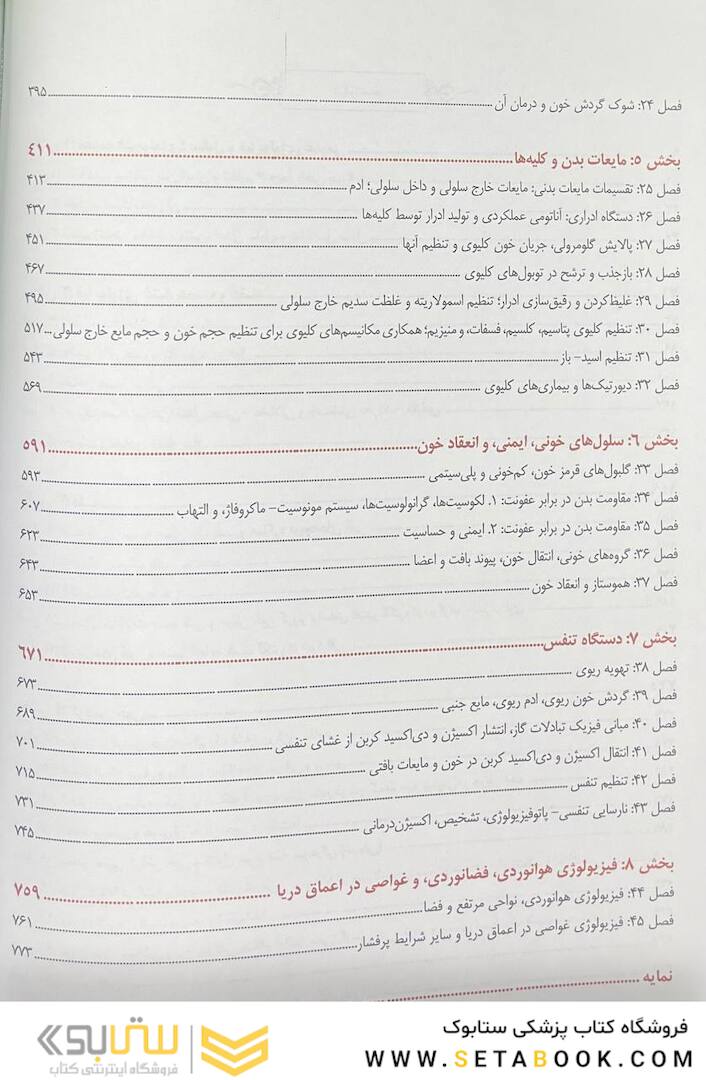 فصل ۲۴: شوک گردش خون و درمان آن ۳۹۵
بخش ۵: مایعات بدن و کلیه‌ها ۴۱۱
فصل ۲۵: تقسیمات مایعات بدنی: مایعات خارج سلولی و داخل سلولی؛ ادم ۴۱۳
فصل ۲۶: دستگاه ادراری: آناتومی عملکردی و تولید ادرار توسط کلیه‌ها ۴۳۷
فصل ۲۷: پالایش گلومرولی، جریان خون کلیوی و تنظیم آنها ۴۵۱
فصل ۲۸: بازجذب و ترشح در توبول‌های کلیوی ۴۶۷
فصل ۲۹: غلیظ‌کردن و رقیق‌سازی ادرار؛ تنظیم اسمولاریته و غلظت سدیم خارج سلولی ۴۹۵
فصل ۳۰: تنظیم کلیوی پتاسیم، کلسیم، فسفات، و منیزیم؛ همکاری مکانیسم‌های کلیوی برای تنظیم حجم خون و حجم مایع خارج سلولی ۵۱۷
فصل ۳۱: تنظیم اسید- باز ۵۴۳
فصل ۳۲: دیورتیک‌ها و بیماری‌های کلیوی ۵۶۹
بخش ۶: سلول‌های خونی، ایمنی، و انعقاد خون ۵۹۱
فصل ۳۳: گلبول‌های قرمز خون، کم‌خونی و پلی‌سیتمی ۵۹۳
فصل ۳۴: مقاومت بدن در برابر عفونت: ۱. لکوسیت‌ها، گرانولوسیت‌ها، سیستم مونوسیت- ماکروفاژ، و التهاب ۶۰۷
فصل ۳۵: مقاومت بدن در برابر عفونت: ۲. ایمنی و حساسیت ۶۲۳
فصل ۳۶: گروه‌های خونی، انتقال خون، پیوند بافت و اعضا ۶۴۳
فصل ۳۷: هموستاز و انعقاد خون ۶۵۳
بخش ۷: دستگاه تنفس ۶۷۱
فصل ۳۸: تهویه ریوی ۶۷۳
فصل ۳۹: گردش خون ریوی، ادم ریوی، مایع جنبی ۶۸۹
فصل ۴۰: مبانی فیزیک تبادلات گاز، انتشار اکسیژن و دی‌اکسید کربن از غشای تنفسی ۷۰۱
فصل ۴۱: انتقال اکسیژن و دی‌اکسید کربن در خون و مایعات بافتی ۷۱۵
فصل ۴۲: تنظیم تنفس ۷۳۱
فصل ۴۳: نارسایی تنفسی- پاتوفیزیولوژی، تشخیص، اکسیژن‌درمانی ۷۴۵
بخش ۸: فیزیولوژی هوانوردی، فضانوردی، و غواصی در اعماق دریا ۷۵۹
فصل ۴۴: فیزیولوژی هوانوردی، نواحی مرتفع و فضا ۷۶۱
فصل ۴۵: فیزیولوژی غواصی در اعماق دریا و سایر شرایط پرفشار ۷۷۳
نمایه
فروشگاه کتاب پزشکی ستابوک
WWW.SETABOOK.COM
ستابوک
فروشگاه اینترنتی کتاب